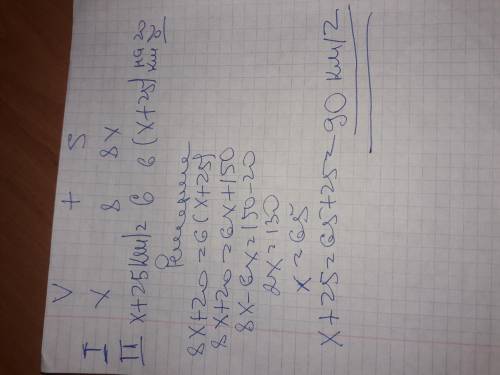 V t S
I X 8 8X
II X+25км/г 6 6(X+25) на 20 км б
8X+20=6(X+25)
8X+20=6X+150
8X-6X=150-20
2X=130
X=65
X+25=65+25=90 км/г